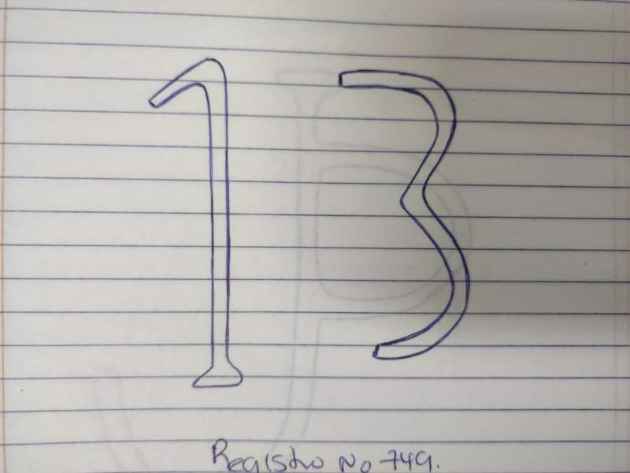 13
Registro No 749.